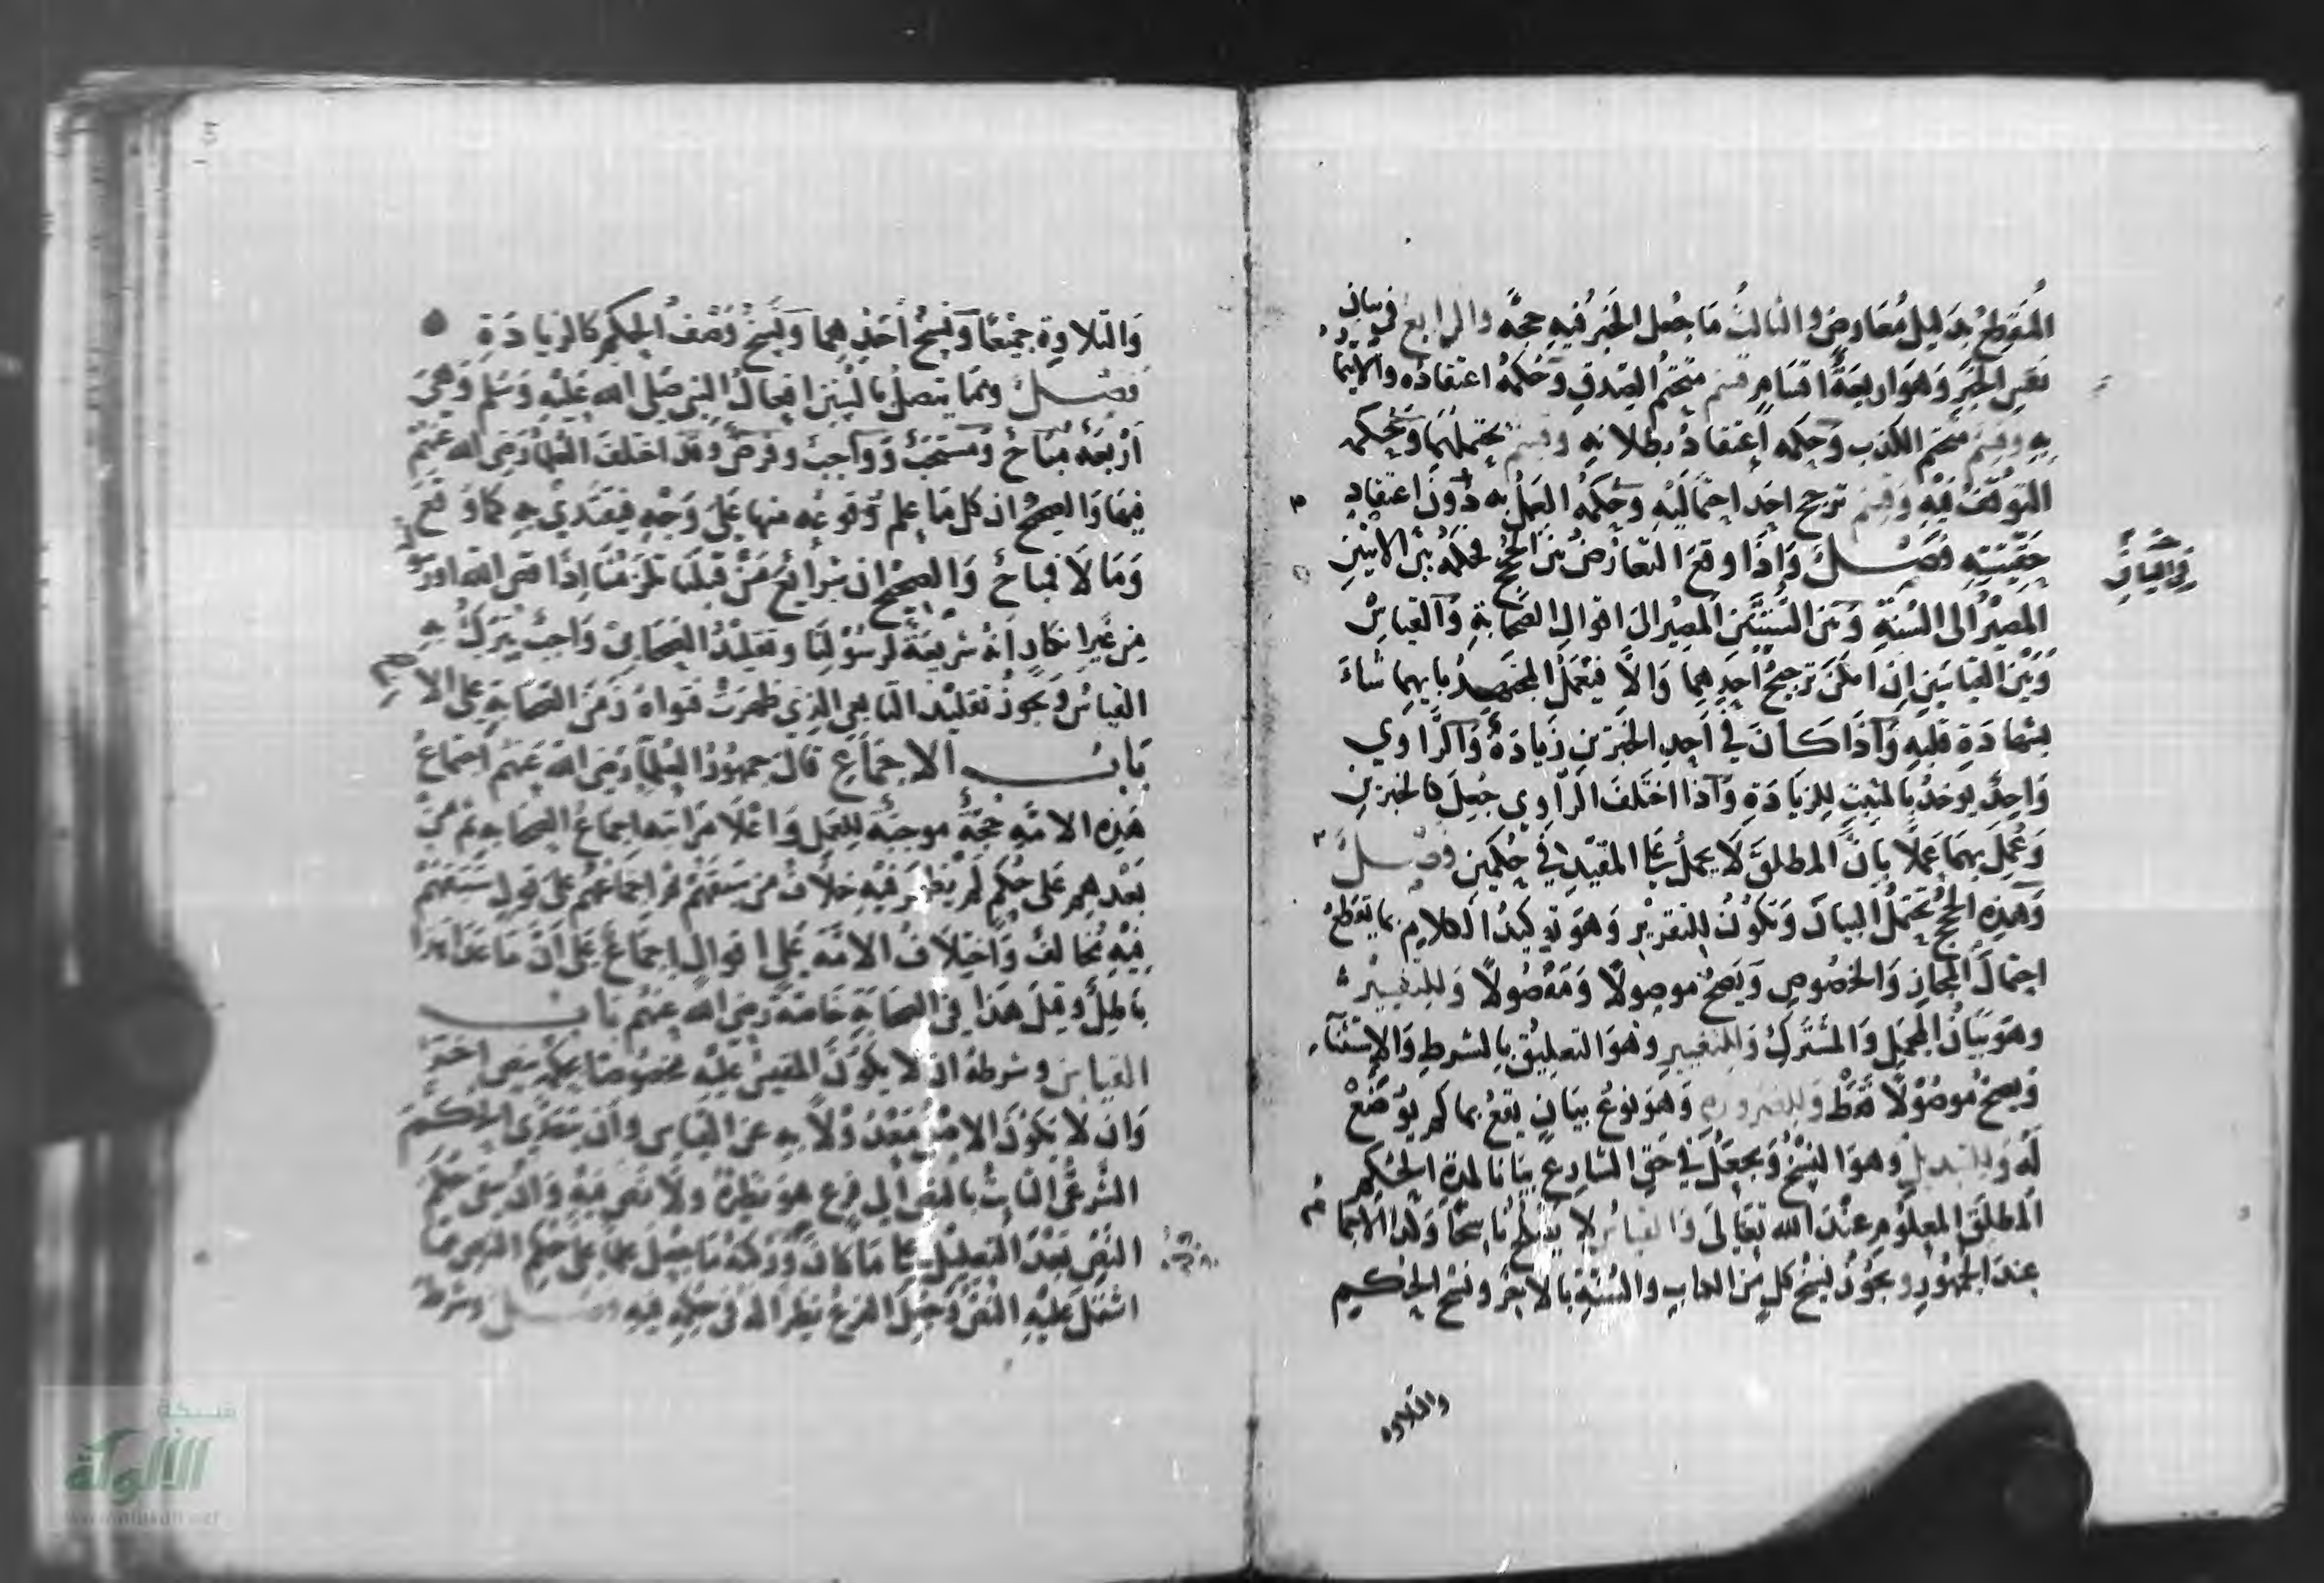 المنقطع بدليل معارض والثالث ما جعل الخبر فيه حجة والرابع في بيان
نفس الخبر وهو اربعة اقسام قسم متحتم الصدق وحكمه اعتقاده والايتمار
به وقسم متحتم الكذب وحكمه اعتقاد بطلانه وقسم يحتملهما وحكمه
التوقف فيه وقسم ترجح احد احتماليه وحكمه العمل به دون اعتقاد
حقيته فصل واذا وقع التعارض بين الحجج فحكمه بين الايتين
المصير الى السنة وبين السنتين المصير الى اقوال الصحابة والقياس
وبين القياسين ان امكن ترجيح احدهما والا فيعمل المجتهد بايهما شاء
بشهادة قلبه واذا كان في احد الخبرين زيادة والراوي
واحد يوخذ بالمثبت للزيادة واذا اختلف الراوي جعل كالخبرين
وعمل بهما عملا بان المطلق لا يحمل على المقيد في حكمين فصل
وهذه الحجج تحتمل البيان ويكون للتقرير وهو توكيد الكلام بما يقطع
احتمال المجاز والخصوص ويصح موصولا ومفصولا وللتفسير
وهو بيان المجمل والمشترك وللتغيير وهو التعليق بالشرط والاستثناء
ويصح موصولا فقط وللضرورة وهو نوع بيان يقع بما لم يوضع
له وللتبديل وهو النسخ ويجعل في حق الشارع بيانا لمدة الحكم
المطلق المعلوم عند الله تعالى والقياس لا يصلح ناسخا وكذا الاجماع
عند الجمهور ويجوز نسخ كل من الكتاب والسنة بالاخر ونسخ الحكم
والتلاوه
والتلاوة جميعا ونسخ احدهما ونسخ وصف الحكم كالزيادة
فصل ومما يتصل بالسنن افعال النبي صلى الله عليه وسلم وهي
اربعة مباح ومستحب وواجب وفرض وقد اختلف العلماء رضي الله عنهم
فيها والصحيح ان كل ما علم وقوعه منها على وجه فيقتدي به كما وقع
وما لا فمباح والصحيح ان شرايع من قبلنا تلزمنا اذا قص الله او رسوله
من غير انكار انه شريعة لرسولنا وتقليد الصحابي واجب يترك به
القياس ويجوز تقليد التابعي الذي ظهرت فتواه زمن الصحابة على الاصح
باب الاجماع قال جمهور العلماء رضي الله عنهم اجماع
هذه الامة حجة موجبة للعمل واعلا مراتبه اجماع الصحابة ثم من
بعدهم على حكم لم يظهر فيه خلاف من سبقهم ثم اجماعهم على قول سبقهم
فيه مخالف واختلاف الامة على اقوال اجماع على ان ما عداها
باطل وقيل هذا في الصحابة خاصة رضي الله عنهم باب
القياس وشرطه ان لا يكون المقيس عليه مخصوصا بحكمه بنص اخر
وان لا يكون الاصل معدولا به عن القياس وان يتعدى الحكم
الشرعي الثابت بالنص الى فرع هو نظيره ولا نص فيه وان يبقى حكم
النص بعد التعليل على ما كان وركنه ما جعل علما على حكم النص مما
اشتمل عليه النص وجعل الفرع نظيرا له في حكمه فيه فصل وشرط
شبكة
الألوكة